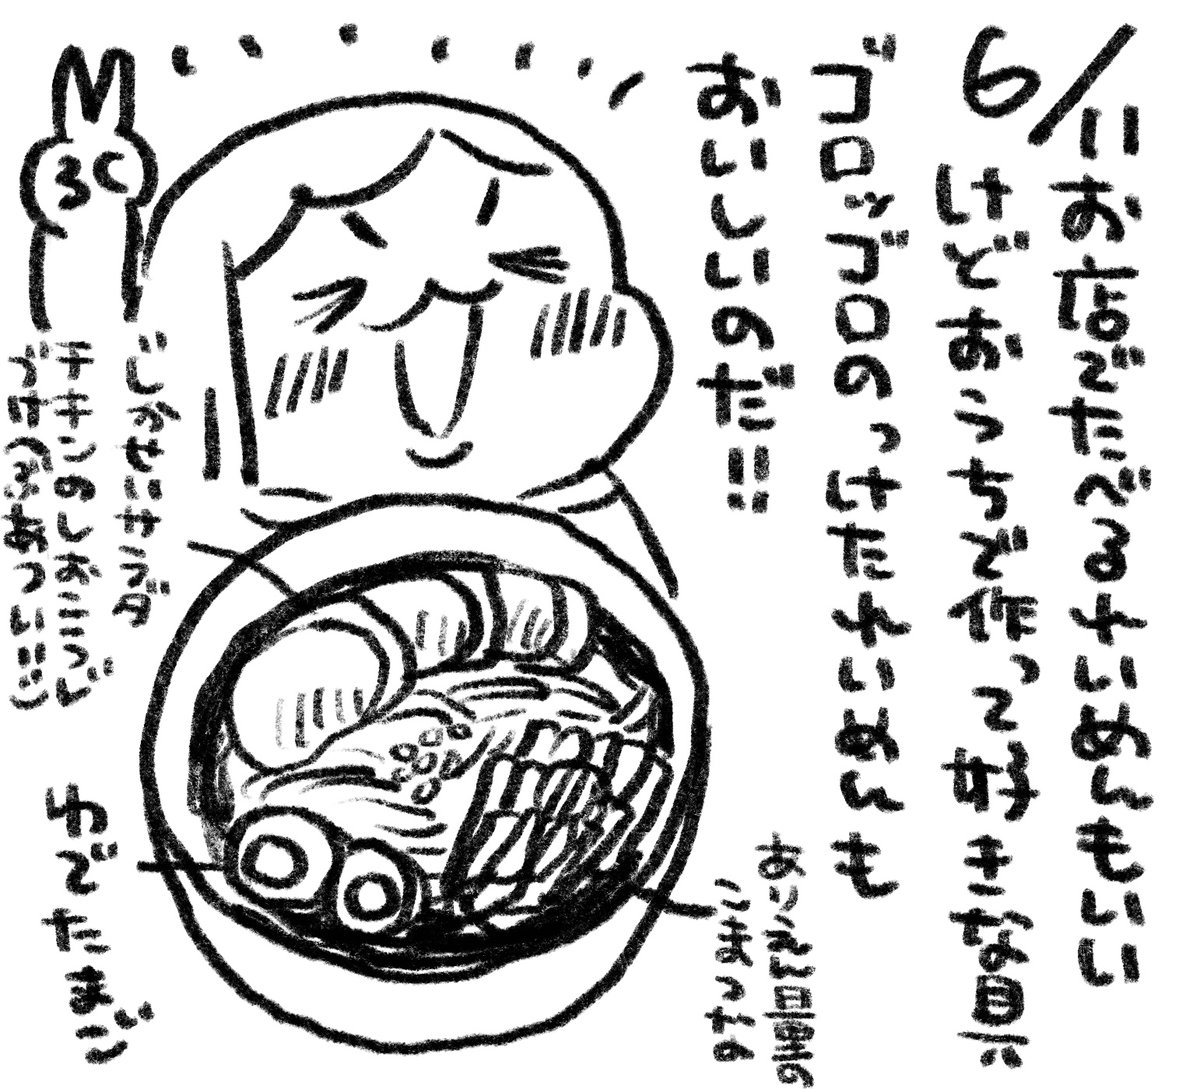 6/11お店でたべるれいめんもいい
けどおうちで作って好きな具
ゴロッゴロのっけたれいめんも
おいしいのだ!!
じかせいサラダ
チキンのしおこうじ
づけ ぶあつい!!
ゆでたまご